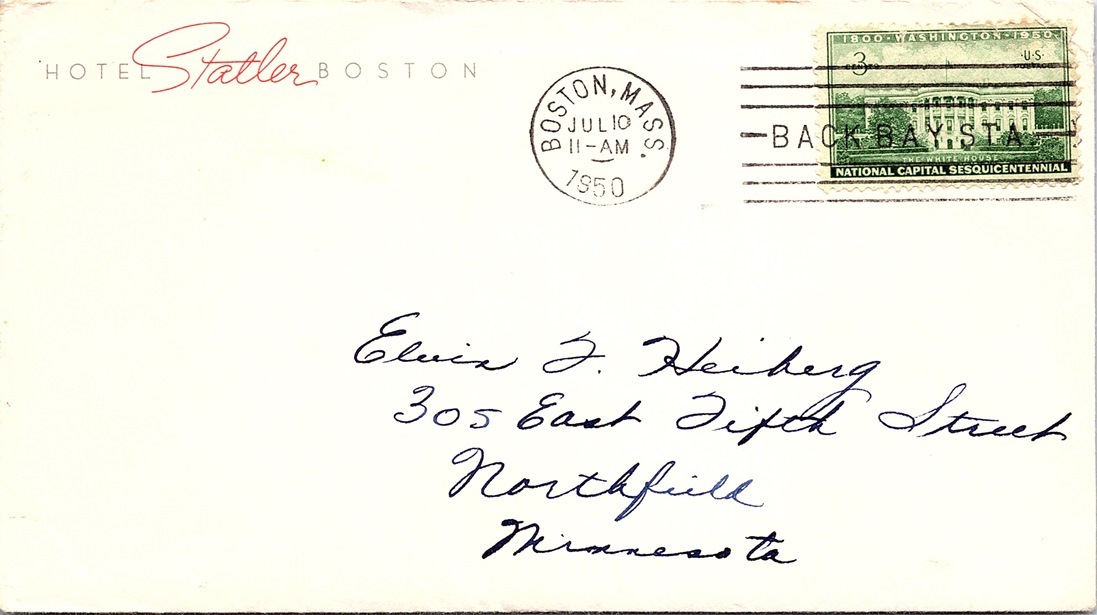 HOTEL Statler BOSTON
BOSTON, MASS.
JUL 10
11-AM
1950
1800-WASHINGTON-1950
3 CENTS U·S· POSTAGE
BACK BAY STA.
THE WHITE HOUSE
NATIONAL CAPITAL SESQUICENTENNIAL
Elvin F. Heiberg
305 East Fifth Street
Northfield
Minnesota